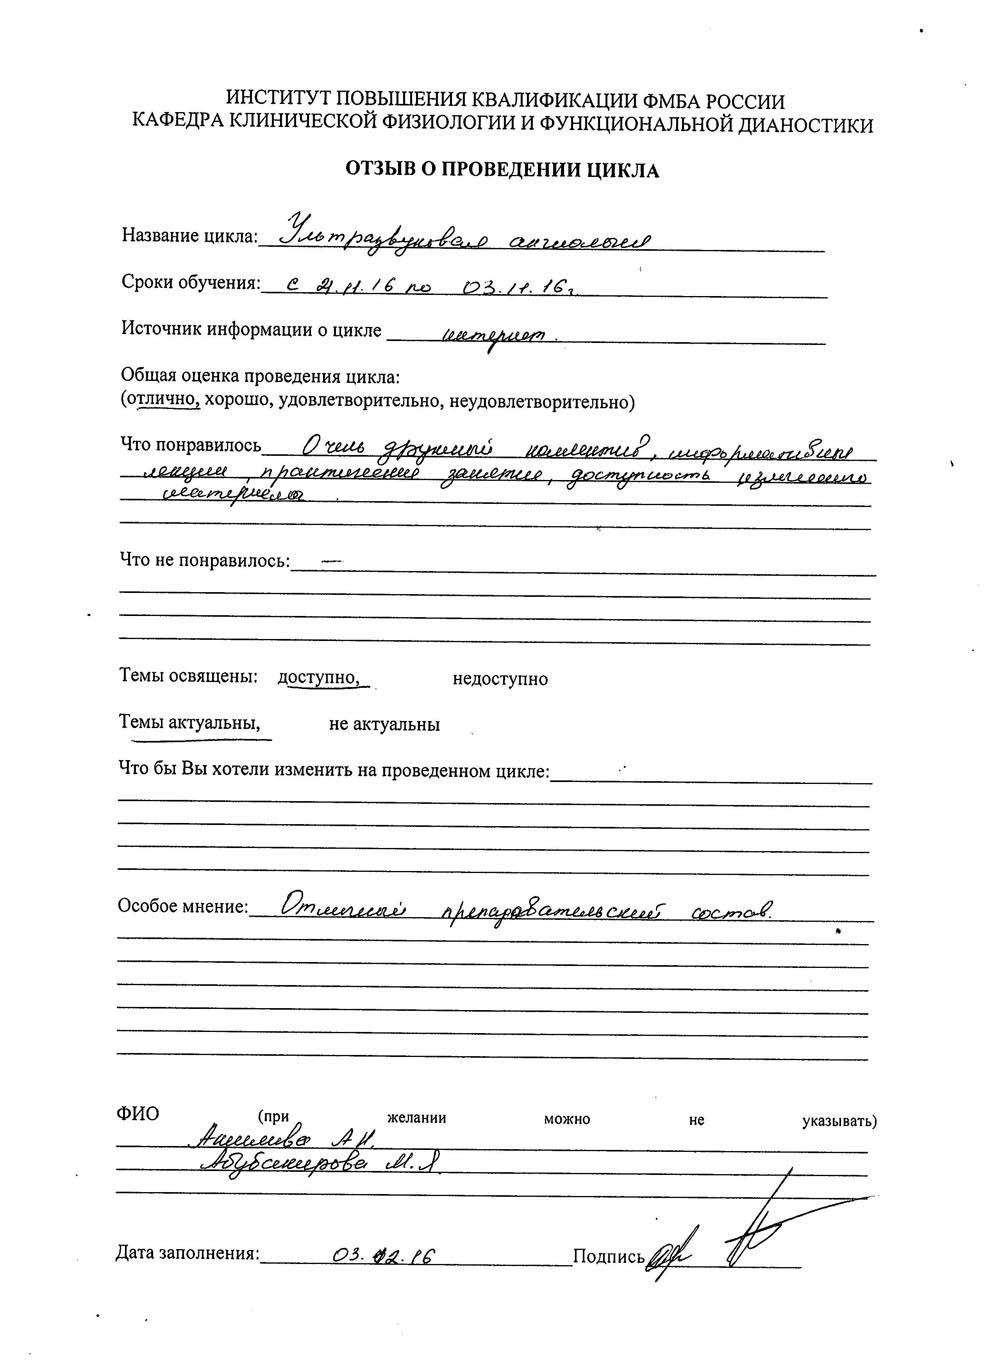 ИНСТИТУТ ПОВЫШЕНИЯ КВАЛИФИКАЦИИ ФМБА РОССИИ
КАФЕДРА КЛИНИЧЕСКОЙ ФИЗИОЛОГИИ И ФУНКЦИОНАЛЬНОЙ ДИАНОСТИКИ
ОТЗЫВ О ПРОВЕДЕНИИ ЦИКЛА
Название цикла: Ультразвуковая ангиология
Сроки обучения: с 21.11.16 по 03.11.16г.
Источник информации о цикле интернет.
Общая оценка проведения цикла:
(отлично, хорошо, удовлетворительно, неудовлетворительно)
Что понравилось Очень дружный коллектив, информативные
лекции, практические занятия, доступность
материала.
Что не понравилось: —
Темы освящены: доступно, недоступно
Темы актуальны, не актуальны
Что бы Вы хотели изменить на проведенном цикле:
Особое мнение: Отличный преподавательский состав.
ФИО (при желании можно не указывать)
А.Н.
Абубакирова М.Я.
Дата заполнения: 03.02.16 Подпись